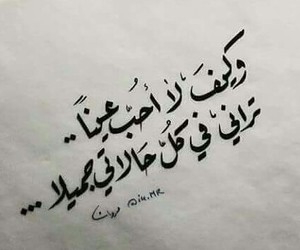 وكيفَ لا أحبّ عيناً..
تراني في كلّ حالاتي جميلا...